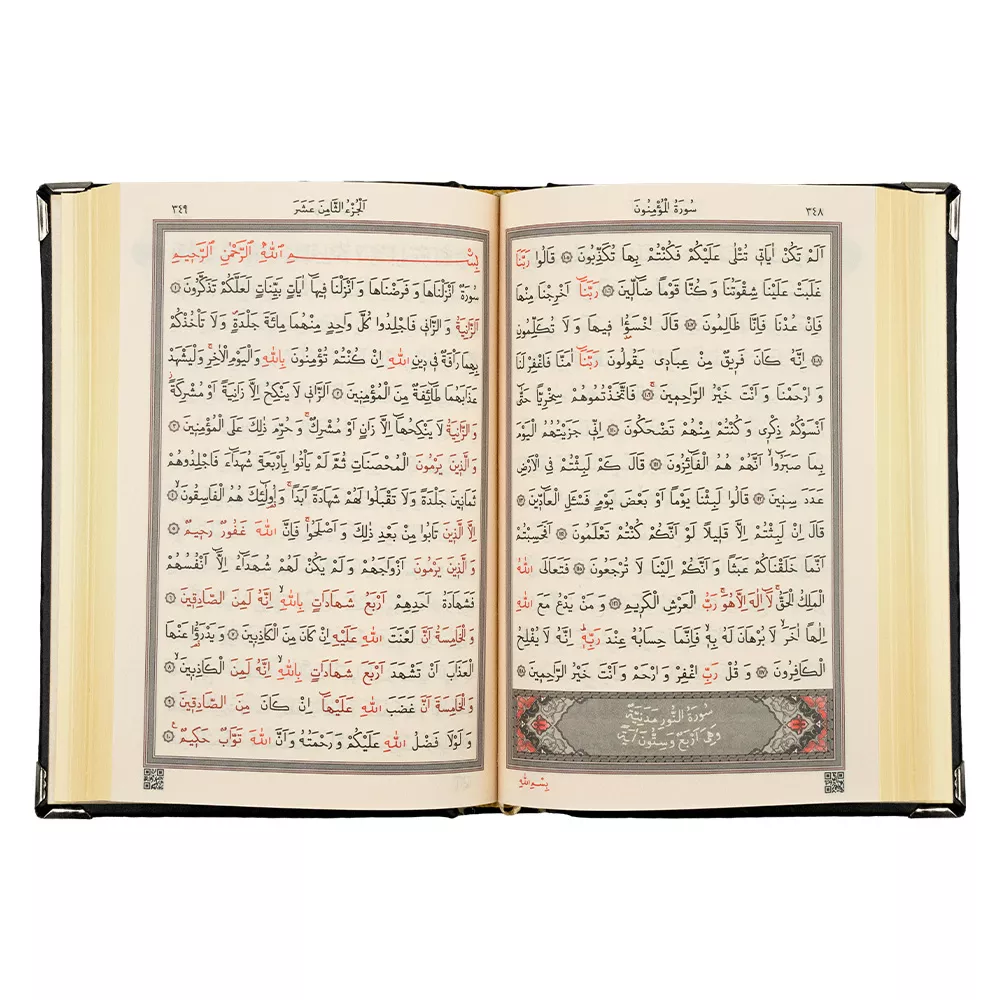 سُورَةُ الْمُؤْمِنُونَ ٣٤٨
اَلَمْ تَكُنْ اٰيَاتٖي تُتْلٰى عَلَيْكُمْ فَكُنْتُمْ بِهَا تُكَذِّبُونَ ﴿١٠٥﴾ قَالُوا رَبَّنَا
غَلَبَتْ عَلَيْنَا شِقْوَتُنَا وَكُنَّا قَوْمًا ضَٓالّٖينَ ﴿١٠٦﴾ رَبَّنَٓا اَخْرِجْنَا مِنْهَا
فَاِنْ عُدْنَا فَاِنَّا ظَالِمُونَ ﴿١٠٧﴾ قَالَ اخْسَؤُ۫ا فٖيهَا وَلَا تُكَلِّمُونِ
﴿١٠٨﴾ اِنَّهُ كَانَ فَرٖيقٌ مِنْ عِبَادٖي يَقُولُونَ رَبَّنَٓا اٰمَنَّا فَاغْفِرْ لَنَا
وَارْحَمْنَا وَاَنْتَ خَيْرُ الرَّاحِمٖينَ ﴿١٠٩﴾ فَاتَّخَذْتُمُوهُمْ سِخْرِيًّا حَتّٰٓى
اَنْسَوْكُمْ ذِكْرٖي وَكُنْتُمْ مِنْهُمْ تَضْحَكُونَ ﴿١١٠﴾ اِنّٖي جَزَيْتُهُمُ الْيَوْمَ
بِمَا صَبَرُٓوا اَنَّهُمْ هُمُ الْفَٓائِزُونَ ﴿١١١﴾ قَالَ كَمْ لَبِثْتُمْ فِي الْاَرْضِ
عَدَدَ سِنٖينَ ﴿١١٢﴾ قَالُوا لَبِثْنَا يَوْمًا اَوْ بَعْضَ يَوْمٍ فَسْـَٔلِ الْعَٓادّٖينَ ﴿١١٣﴾
قَالَ اِنْ لَبِثْتُمْ اِلَّا قَلٖيلًا لَوْ اَنَّكُمْ كُنْتُمْ تَعْلَمُونَ ﴿١١٤﴾ اَفَحَسِبْتُمْ
اَنَّمَا خَلَقْنَاكُمْ عَبَثًا وَاَنَّكُمْ اِلَيْنَا لَا تُرْجَعُونَ ﴿١١٥﴾ فَتَعَالَى اللّٰهُ
الْمَلِكُ الْحَقُّ لَٓا اِلٰهَ اِلَّا هُوَ رَبُّ الْعَرْشِ الْكَرٖيمِ ﴿١١٦﴾ وَمَنْ يَدْعُ مَعَ اللّٰهِ
اِلٰهًا اٰخَرَ لَا بُرْهَانَ لَهُ بِهٖ فَاِنَّمَا حِسَابُهُ عِنْدَ رَبِّهٖ اِنَّهُ لَا يُفْلِحُ
الْكَافِرُونَ ﴿١١٧﴾ وَقُلْ رَبِّ اغْفِرْ وَارْحَمْ وَاَنْتَ خَيْرُ الرَّاحِمٖينَ ﴿١١٨﴾
سُورَةُ النُّورِ مَدَنِيَّةٌ
وَهِيَ اَرْبَعٌ وَسِتُّونَ اٰيَةً
بِسْمِ اللّٰهِ
اَلْجُزْءُ الثَّامِنَ عَشَرَ ٣٤٩
بِسْمِ اللّٰهِ الرَّحْمٰنِ الرَّحٖيمِ
سُورَةٌ اَنْزَلْنَاهَا وَفَرَضْنَاهَا وَاَنْزَلْنَا فٖيهَٓا اٰيَاتٍ بَيِّنَاتٍ لَعَلَّكُمْ تَذَكَّرُونَ ﴿١﴾
اَلزَّانِيَةُ وَالزَّانٖي فَاجْلِدُوا كُلَّ وَاحِدٍ مِنْهُمَا مِائَةَ جَلْدَةٍ وَلَا تَأْخُذْكُمْ
بِهِمَا رَأْفَةٌ فٖي دٖينِ اللّٰهِ اِنْ كُنْتُمْ تُؤْمِنُونَ بِاللّٰهِ وَالْيَوْمِ الْاٰخِرِ وَلْيَشْهَدْ
عَذَابَهُمَا طَٓائِفَةٌ مِنَ الْمُؤْمِنٖينَ ﴿٢﴾ اَلزَّانٖي لَا يَنْكِحُ اِلَّا زَانِيَةً اَوْ مُشْرِكَةً
وَالزَّانِيَةُ لَا يَنْكِحُهَٓا اِلَّا زَانٍ اَوْ مُشْرِكٌ وَحُرِّمَ ذٰلِكَ عَلَى الْمُؤْمِنٖينَ ﴿٣﴾
وَالَّذٖينَ يَرْمُونَ الْمُحْصَنَاتِ ثُمَّ لَمْ يَأْتُوا بِاَرْبَعَةِ شُهَدَٓاءَ فَاجْلِدُوهُمْ
ثَمَانٖينَ جَلْدَةً وَلَا تَقْبَلُوا لَهُمْ شَهَادَةً اَبَدًا وَاُولٰٓئِكَ هُمُ الْفَاسِقُونَ ﴿٤﴾
اِلَّا الَّذٖينَ تَابُوا مِنْ بَعْدِ ذٰلِكَ وَاَصْلَحُوا فَاِنَّ اللّٰهَ غَفُورٌ رَحٖيمٌ ﴿٥﴾
وَالَّذٖينَ يَرْمُونَ اَزْوَاجَهُمْ وَلَمْ يَكُنْ لَهُمْ شُهَدَٓاءُ اِلَّٓا اَنْفُسُهُمْ
فَشَهَادَةُ اَحَدِهِمْ اَرْبَعُ شَهَادَاتٍ بِاللّٰهِ اِنَّهُ لَمِنَ الصَّادِقٖينَ ﴿٦﴾
وَالْخَامِسَةُ اَنَّ لَعْنَتَ اللّٰهِ عَلَيْهِ اِنْ كَانَ مِنَ الْكَاذِبٖينَ ﴿٧﴾ وَيَدْرَؤُ۬ا عَنْهَا
الْعَذَابَ اَنْ تَشْهَدَ اَرْبَعَ شَهَادَاتٍ بِاللّٰهِ اِنَّهُ لَمِنَ الْكَاذِبٖينَ ﴿٨﴾
وَالْخَامِسَةَ اَنَّ غَضَبَ اللّٰهِ عَلَيْهَٓا اِنْ كَانَ مِنَ الصَّادِقٖينَ ﴿٩﴾
وَلَوْلَا فَضْلُ اللّٰهِ عَلَيْكُمْ وَرَحْمَتُهُ وَاَنَّ اللّٰهَ تَوَّابٌ حَكٖيمٌ ﴿١٠﴾